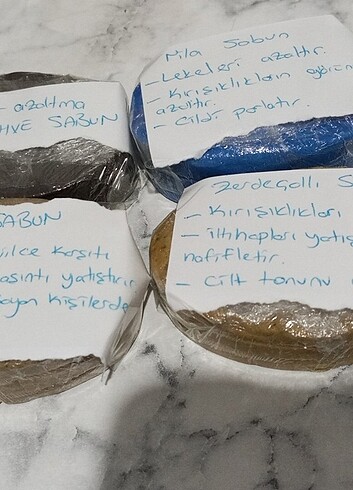 - azaltma
HVE SABUN
Nila Sabun
- Lekeleri azaltır.
- Kırışıklıkların görün
azaltır.
- Cildi parlatır.
SABUN
vilce karşıtı
aşıntı yatıştırır
kişilerde
Zerdeçallı S
- Kırışıklıkları
- İltihapları yatış
hafifletir.
- Cilt tonunu